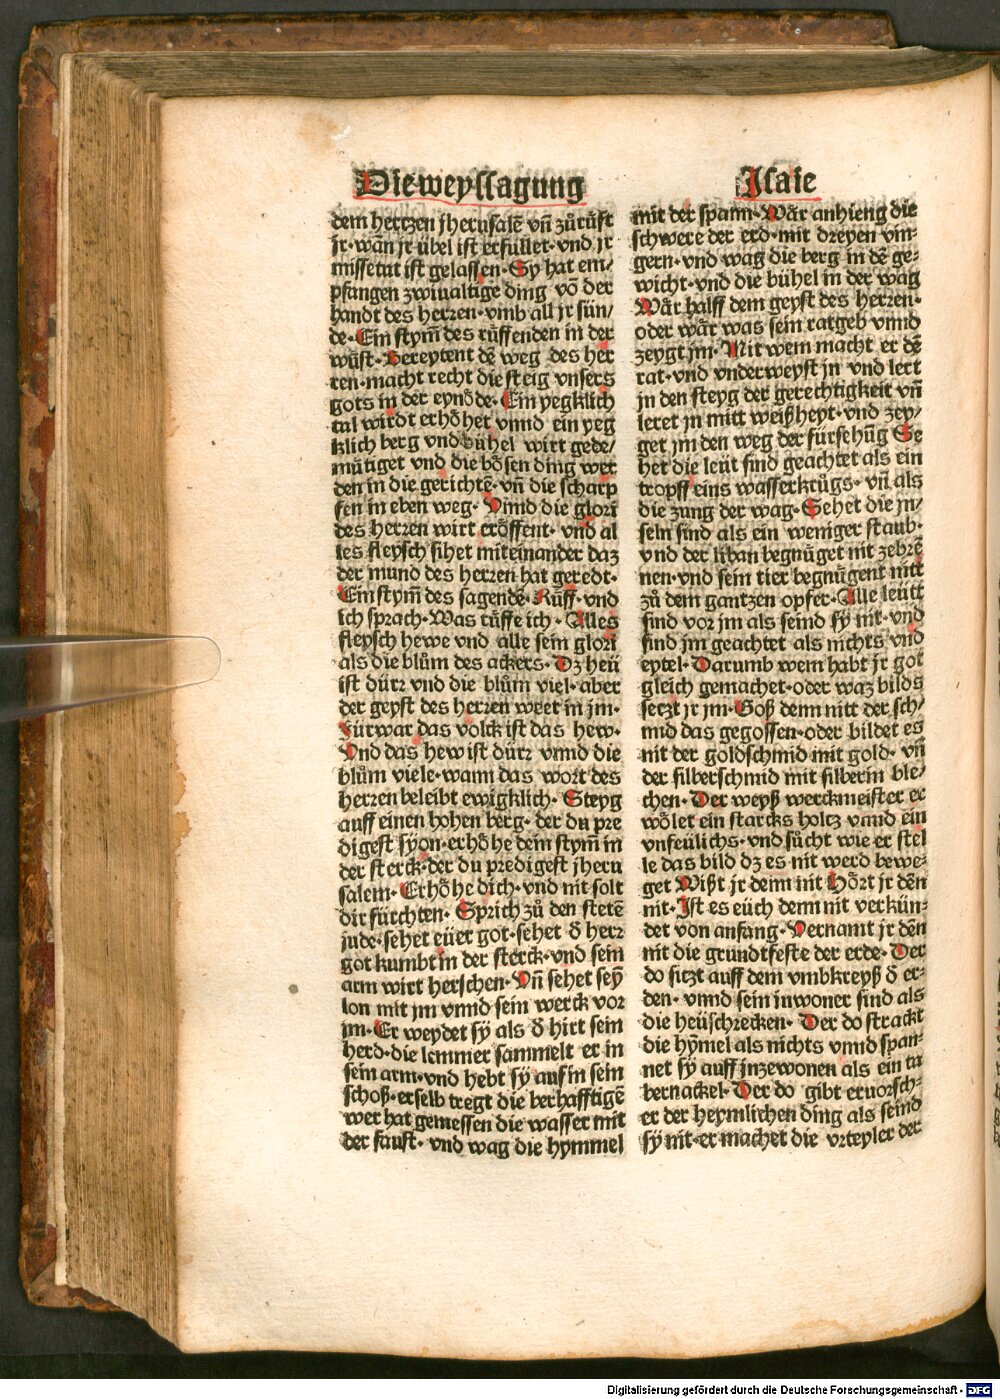 Die weyssagung
Isaie
dem hertzen jherusalē vñ zůrůft
jr· wan̄ jr übel ist erfüllet· vnd jr
missetat ist gelassen· Sy hat em/
pfangen zwiualtige ding vō der
handt des herren· vmb all jr sün/
de· Ein stym̄ des rüffenden in der
wüst· Bereytent dē weg des her
ren· macht recht die steig vnsers
gots in der eynöde· Ein yegklich
tal wirdt erhöhet vnnd ein yeg
klich berg vnd bühel wirt gede/
mütiget vnd die bösen ding wer
den in die gerichtē· vñ die scharp
fen in eben weg· Vnnd die glori
des herren wirt eröffent· vnd al
les fleysch sihet miteinander daz
der mund des herren hat geredt·
Ein stym̄ des sagendē· Rüff· vnd
ich sprach· Was rüffe ich· Alles
fleysch hewe vnd alle sein glori
als die blům des ackers· Dz heü
ist dürz vnd die blům viel· aber
der geyst des herren weet in jm·
Fürwar das volck ist das hew·
Vnd das hew ist dürz vnnd die
blům viele· wann das wort des
herren beleibt ewigklich· Steyg
auff einen hohen berg· der du pre
digest syon· erhöhe dein stym̄ in
der sterck· der du predigest jheru
salem· Erhöhe dich· vnd nit solt
dir fürchten· Sprich zů den stetē
jude· sehet eüer got· sehet d̄ herr
got kumbt in der sterck· vnd sein
arm wirt herschen· Vñ sehet seȳ
lon mit jm vnnd sein werck vor
jm· Er weydet sy als d̄ hirt sein
herd· die lemmer sammelt er in
sein arm· vnd hebt sy auf in sein
schoß· er selb tregt die berhafftigē
wer hat gemessen die wasser mit
der faust· vnd wag die hymmel
mit der spann· Wår anhieng die
schwere der erd· mit dreyen vin-
gern· vnd wag die berg in dē ge-
wicht· vnd die bühel in der wag
Wår halff dem geyst des herren·
oder wår was sein ratgeb vnnd
zeygt jm· Mit wem macht er dē
rat· vnd vnderweyst jn vnd lert
jn den steyg der gerechtigkeit vñ
leret jn mitt weißheyt· vnd zey/
get jm den weg der fürsehūg Se
het die leüt sind geachtet als ein
tropff eins wasserkrügs· vñ als
die zung der wag· Sehet die jn/
seln sind als ein weniger staub·
vnd der liban begnüget nit zebrē
nen· vnd sein tier begnügent nitt
zů dem gantzen opfer· Alle leütt
sind vor jm als seind sy nit· vnd
sind jm geachtet als nichts vnd
eytel· Darumb wem habt jr got
gleich gemachet· oder waz bilds
setzt jr jm· Goß denn nitt der sch/
mid das gegossen· oder bildet es
nit der goldschmid mit gold· vñ
der silberschmid mit silberin ble/
chen· Der weyß werckmeister er
wölet ein starcks holtz vnnd ein
vnfeülichs· vnd sücht wie er stel
le das bild dz es nit werd bewe-
get Wißt jr denn nit Hört jr dēn
nit· Ist es eüch denn nit verkün-
det von anfang· Vernamt jr dēn
nit die grundtfeste der erde· Der
do sitzt auff dem vmbkreyß d̄ er-
den· vnnd sein inwoner sind als
die heüschrecken· Der do strackt
die hȳmel als nichts vnnd span-
net sy auff jnzewonen als ein ta
bernackel· Der do gibt ervorsch-
er der heymlichen ding als seind
sy nit· er machet die vrteyler der
Digitalisierung gefördert durch die Deutsche Forschungsgemeinschaft - DFG